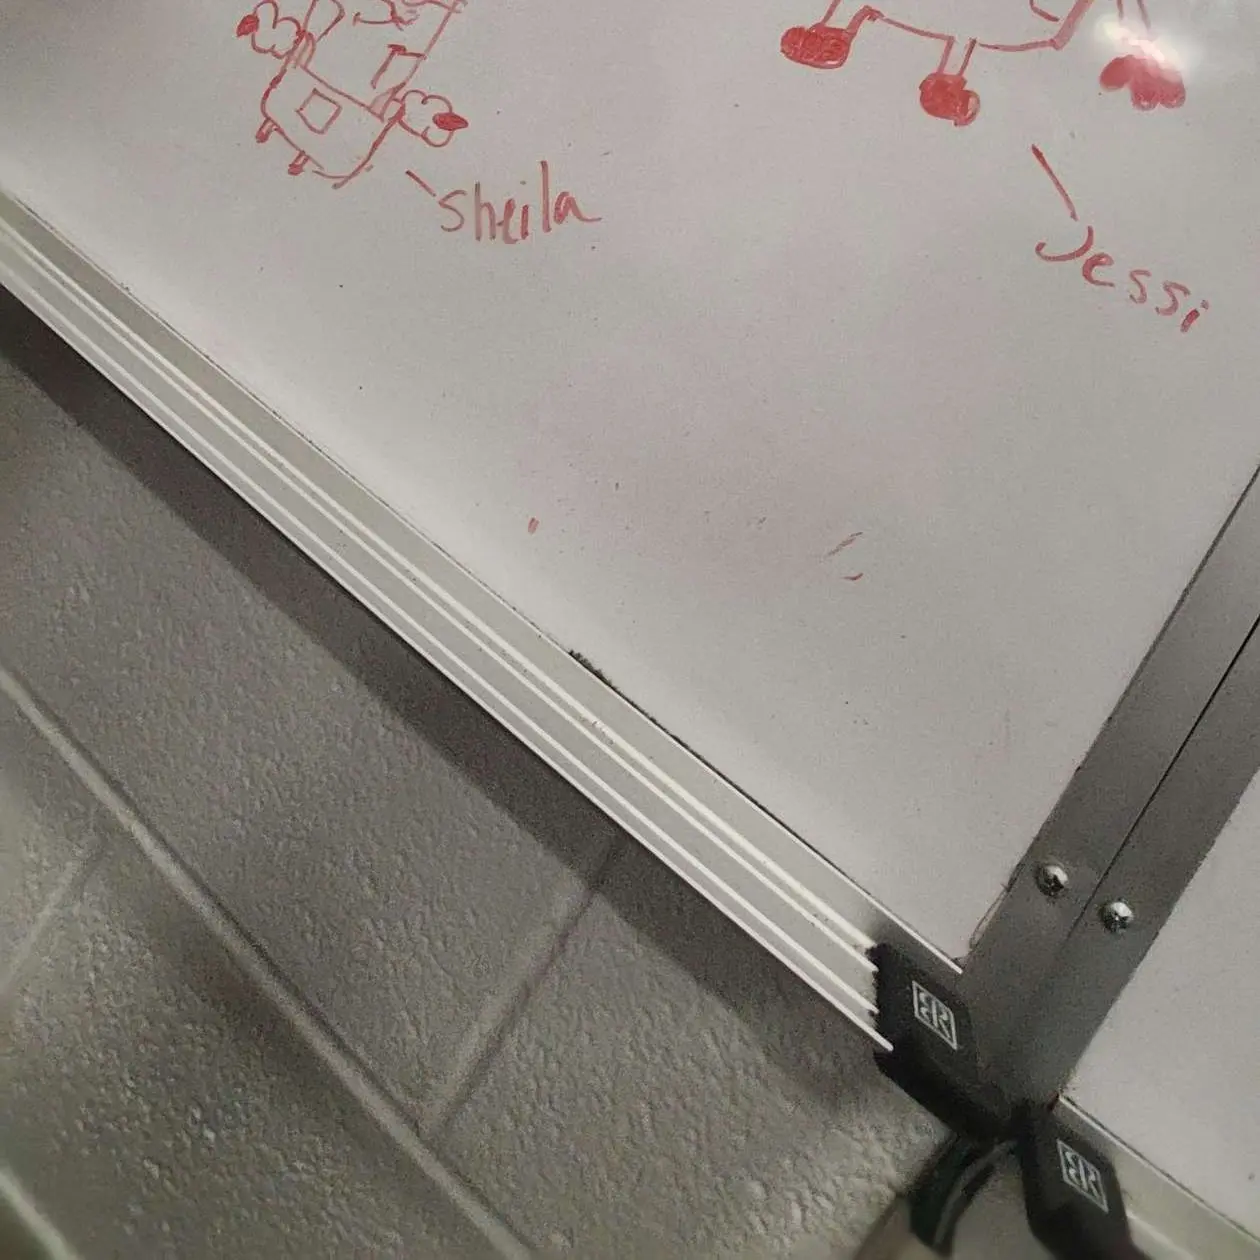 sheila
Jessi